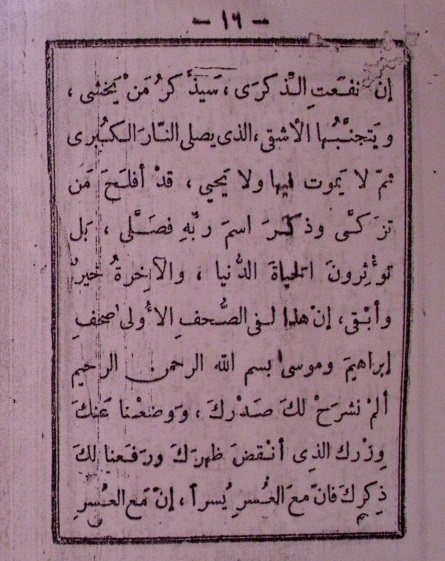 — ١٦ —
إن نفعت الذكرى ، سيذكر من يخشى ،
ويتجنبها الأشقى ، الذى يصلى النار الكبرى
ثم لا يموت فيها ولا يحيى ، قد أفلح من
تزكى وذكر اسم ربه فصلى ، بل
تؤثرون الحياة الدنيا ، والآخرة خير
وأبقى ، إن هذا لفى الصحف الأولى صحف
إبراهيم وموسى بسم الله الرحمن الرحيم
ألم نشرح لك صدرك ، ووضعنا عنك
وزرك الذى أنقض ظهرك ورفعنا لك
ذكرك فان مع العسر يسرا ، إن مع العسر